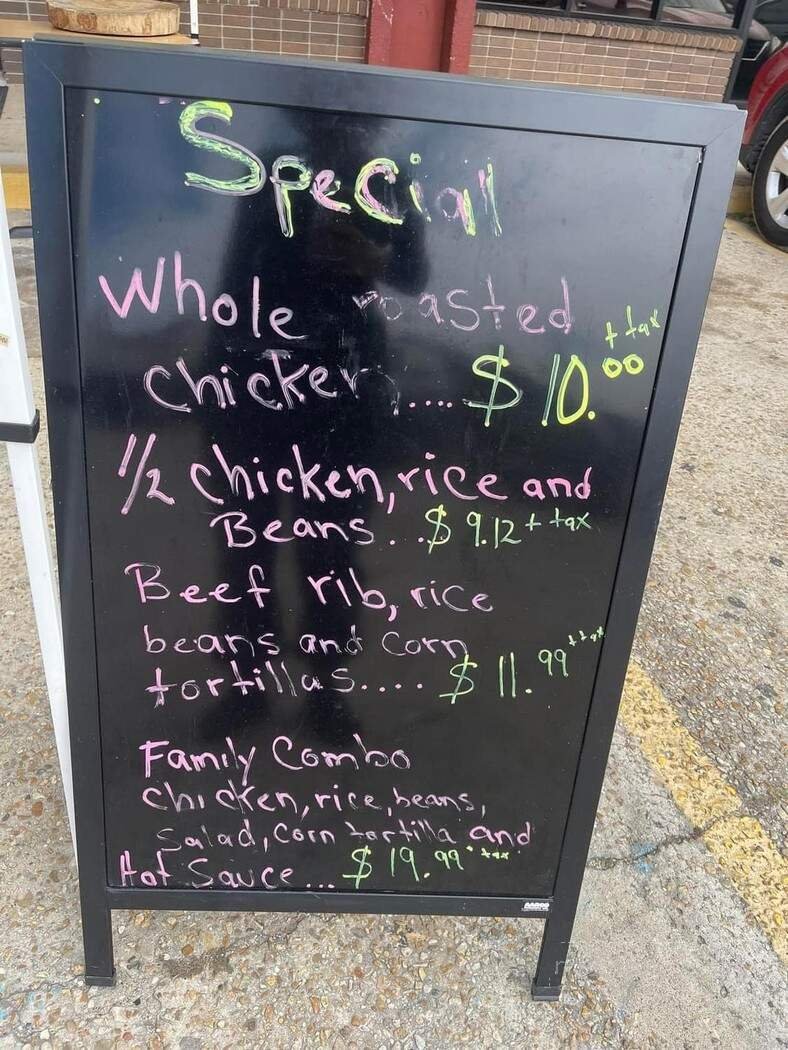 Special
Whole roasted
chicken.... $10.00 + tax
1/2 chicken, rice and
Beans...$ 9.12 + tax
Beef rib, rice
beans and corn
tortillas.... $ 11.99 + tax
Family Combo
Chicken, rice, beans,
Salad, Corn tortilla and
Hot Sauce... $19.99 + tax